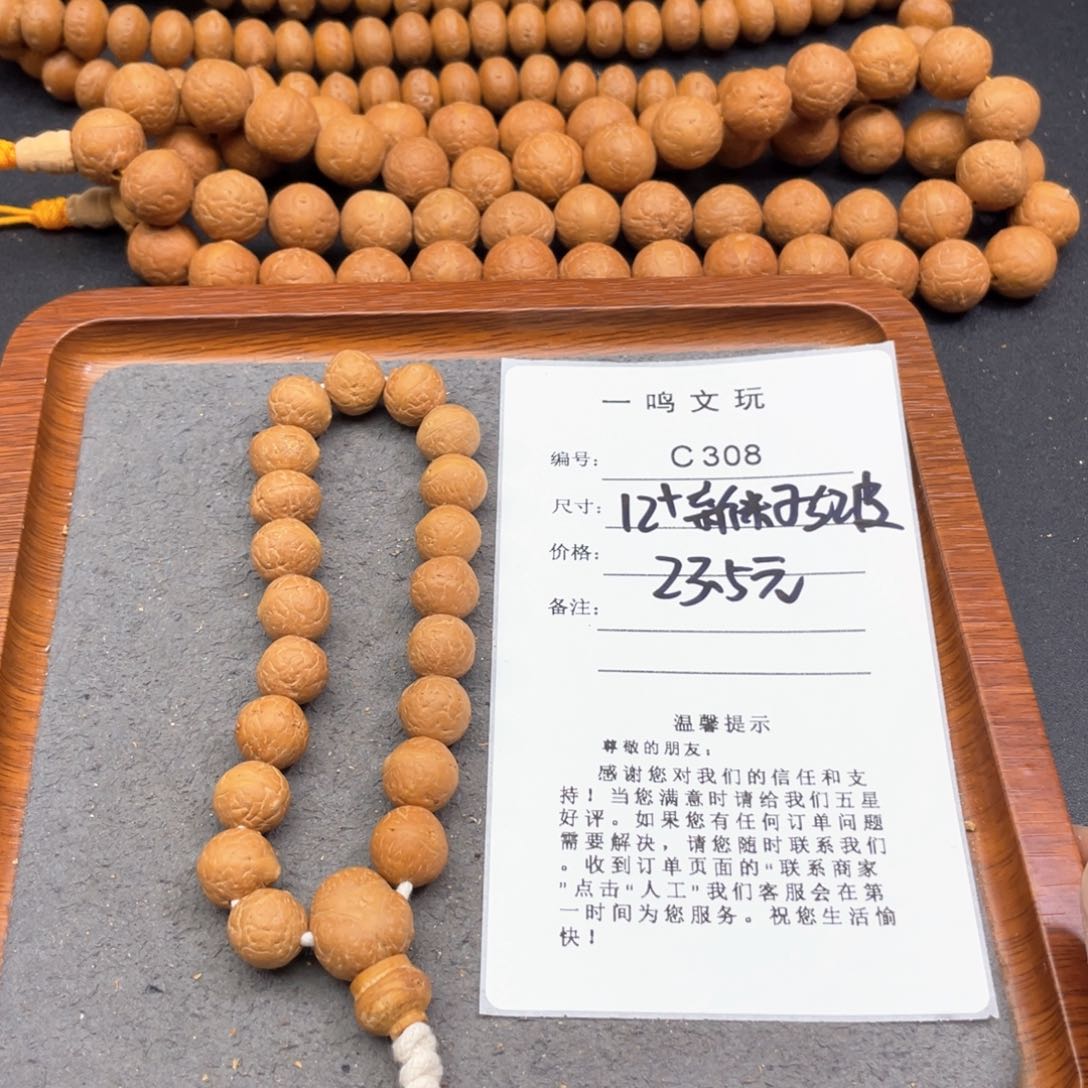 一鸣文玩
编号: C308
尺寸: 12+
价格: 23.5元
备注:
温馨提示
尊敬的朋友:
感谢您对我们的信任和支
持!当您满意时请给我们五星
好评。如果您有任何订单问题
需要解决,请您随时联系我们
。收到订单页面的"联系商家
"点击"人工"我们客服会在第
一时间为您服务。祝您生活愉
快!